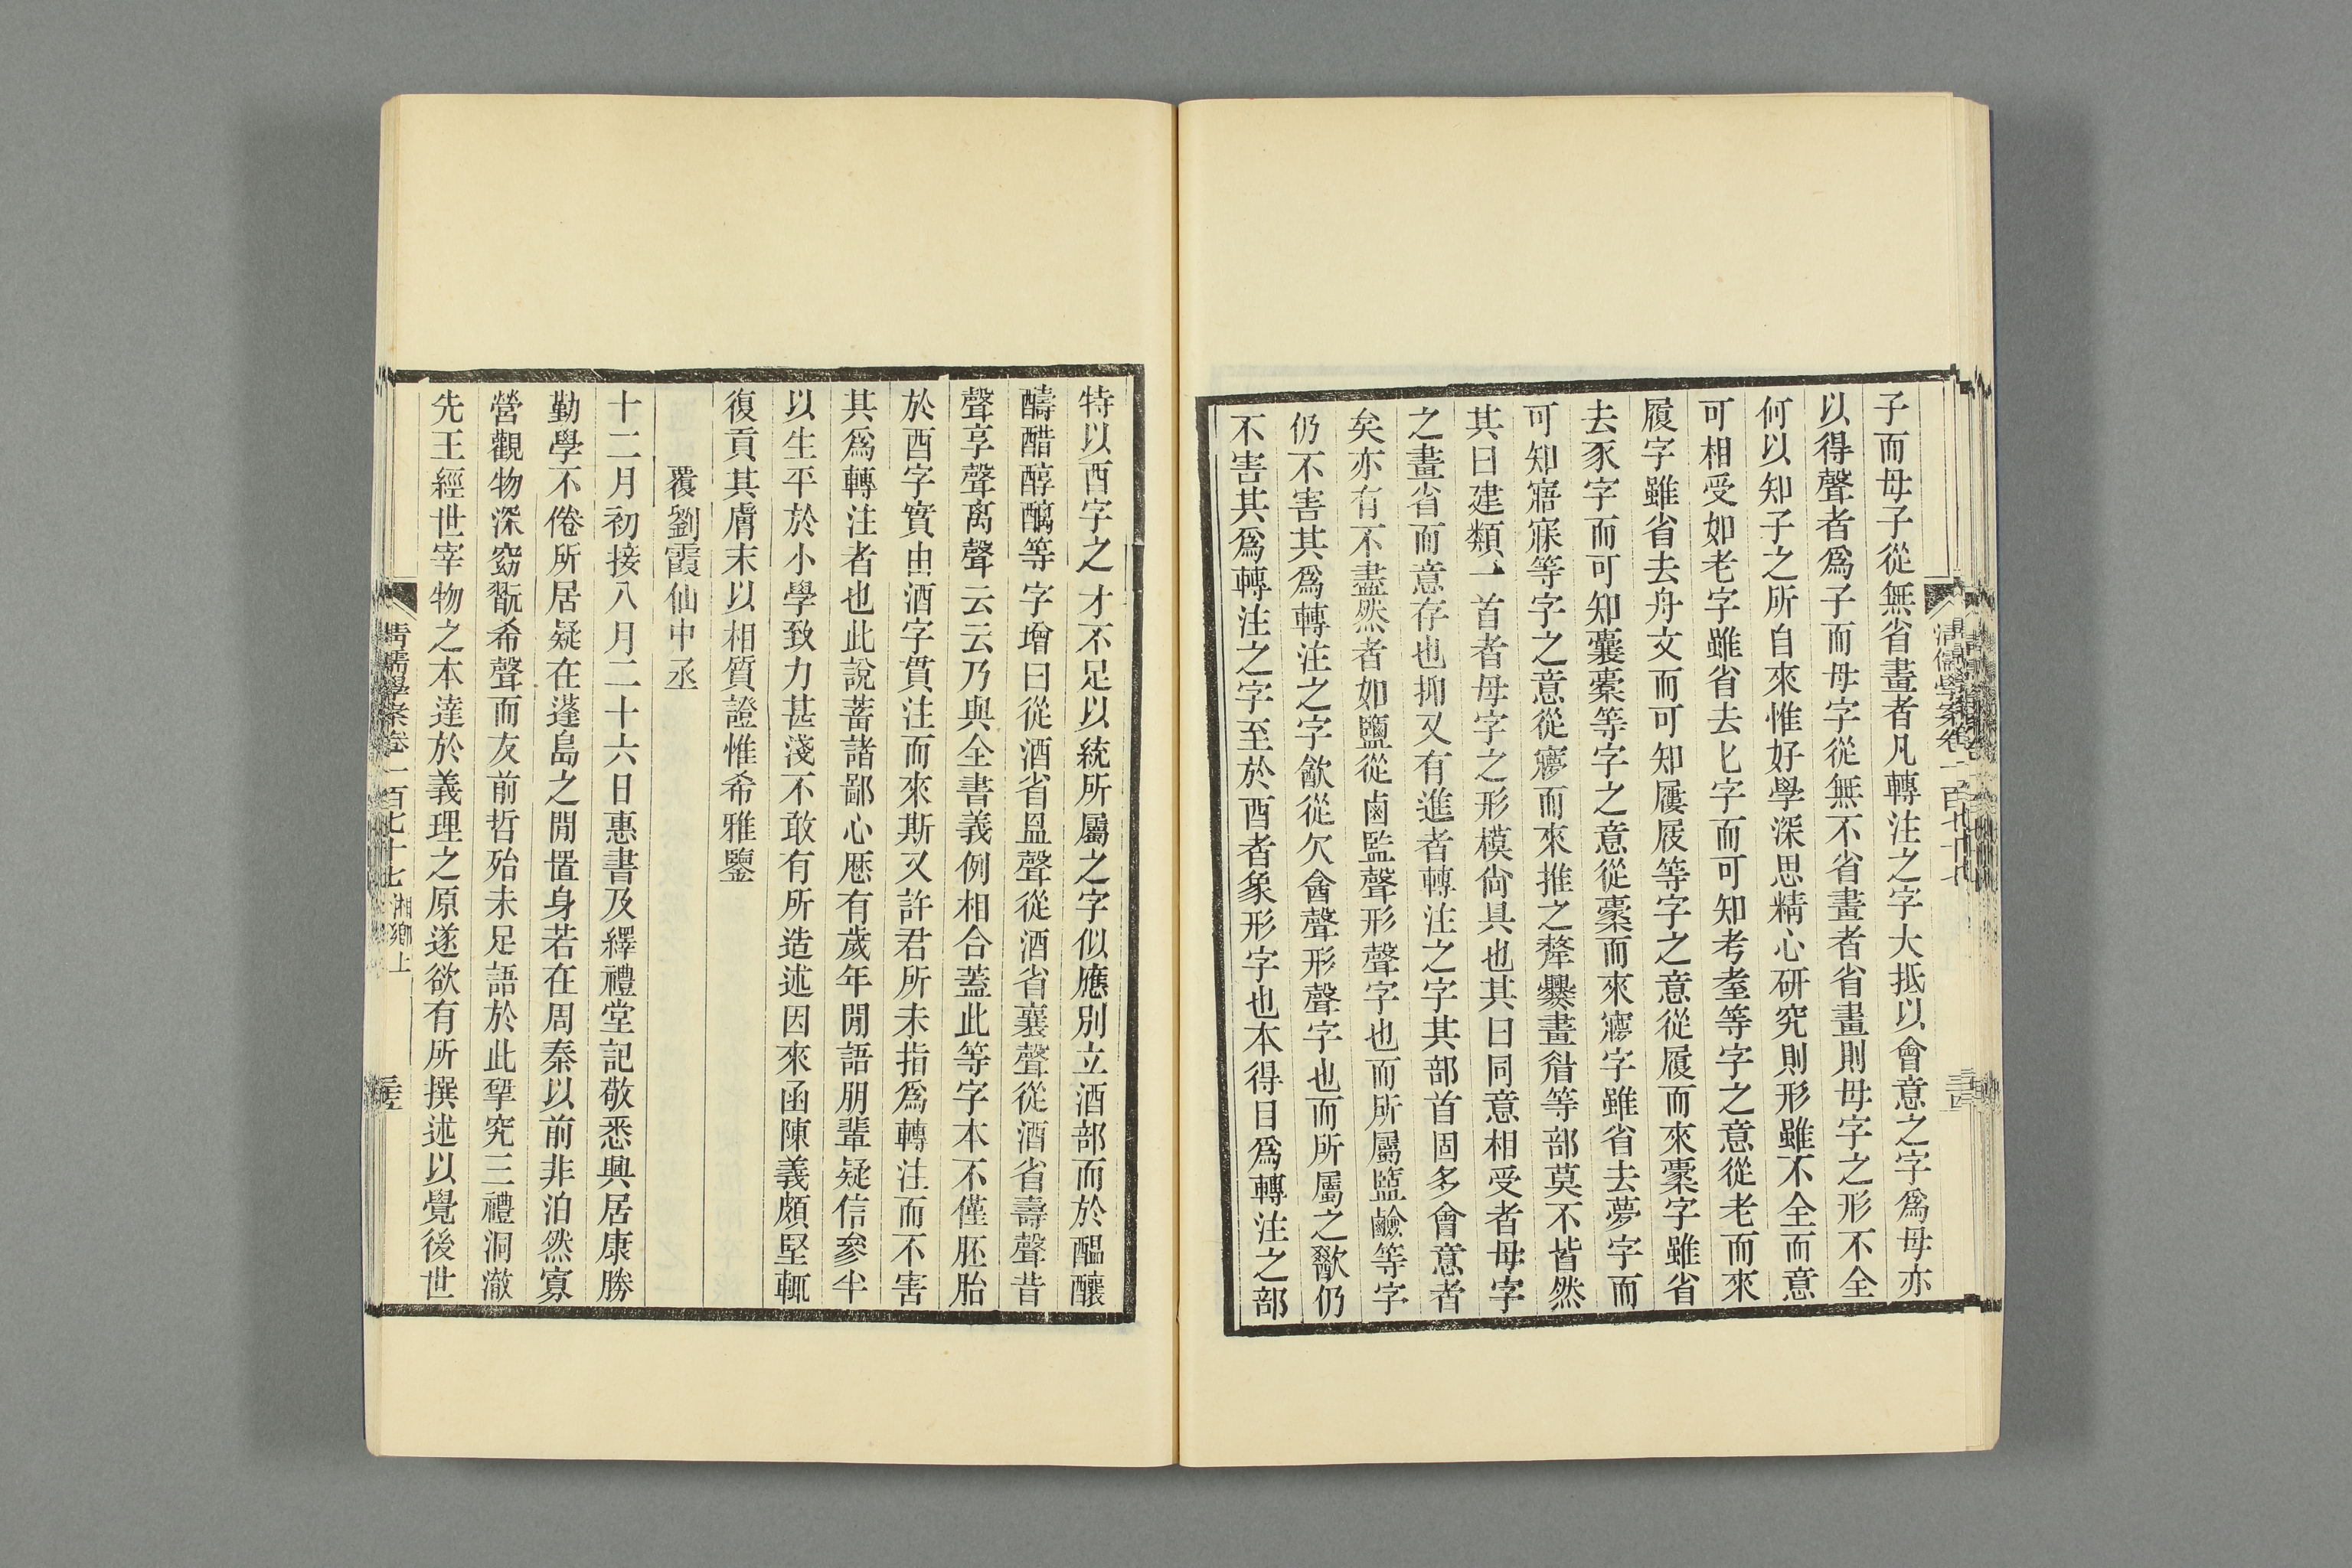 子而母子從無省畫者凡轉注之字大抵以會意之字爲母亦
以得聲者爲子而母字從無不省畫者省畫則母字之形不全
何以知子之所自來惟好學深思精心研究則形雖不全而意
可相受如老字雖省去匕字而可知考耊等字之意從老而來
履字雖省去舟文而可知屨屐等字之意從履而來橐字雖省
去豕字而可知囊橐等字之意從橐而來㝱字雖省去夢字而
可知寤寐等字之意從㝱而來推之犛爨畫眉等部莫不皆然
其曰建類一首者母字之形模尚具也其曰同意相受者母字
之畫省而意存也抑又有進者轉注之字其部首固多會意者
矣亦有不盡然者如鹽從鹵監聲形聲字也而所屬鹽鹼等字
仍不害其爲轉注之字歙從欠酓聲形聲字也而所屬之歠仍
不害其爲轉注之字至於酉者象形字也本得目爲轉注之部
清儒學案卷一百七十七
三十四
特以酉字之才不足以統所屬之字似應別立酒部而於醞釀
醻醋醇醨等字增曰從酒省昷聲從酒省襄聲從酒省壽聲昔
聲享聲离聲云云乃與全書義例相合蓋此等字本不僅胚胎
於酉字實由酒字貫注而來斯又許君所未指爲轉注而不害
其爲轉注者也此說蓄諸鄙心歷有歲年閒語朋輩疑信參半
以生平於小學致力甚淺不敢有所造述因來函陳義頗堅輒
復貢其膚末以相質證惟希雅鑒
覆劉霞仙中丞
十二月初接八月二十六日惠書及繹禮堂記敬悉興居康勝
勤學不倦所居疑在蓬島之閒置身若在周秦以前非泊然寡
營觀物深窈翫希聲而友前哲殆未足語於此揅究三禮洞澈
先王經世宰物之本達於義理之原遂欲有所撰述以覺後世
清儒學案卷一百七十七 湘鄉上
三十五